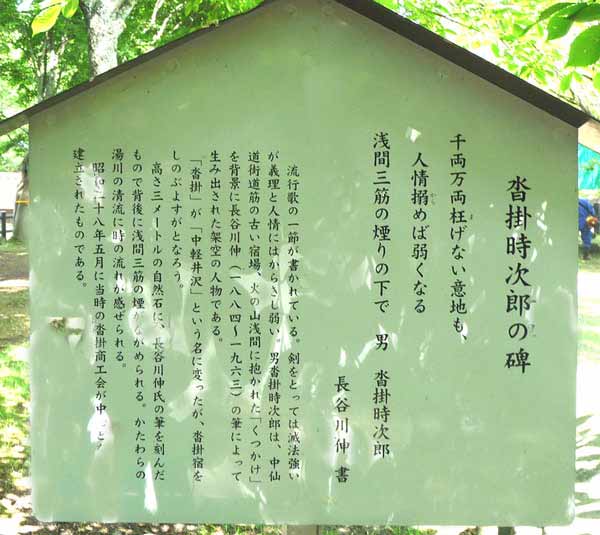 沓掛時次郎の碑
千両万両枉げない意地も、
人情搦めば弱くなる
浅間三筋の煙りの下で 男 沓掛時次郎
長谷川伸 書
流行歌の一節が書かれている。剣をとっては滅法強い
が義理と人情にはからきし弱い。男沓掛時次郎は、中仙
道街道筋の古い宿場、火の山浅間に抱かれた「くつかけ」
を背景に長谷川伸(一八八四〜一九六三)の筆によって
生み出された架空の人物である。
「沓掛」が「中軽井沢」という名に変ったが、沓掛宿を
しのぶよすがとなろう。
高さ三メートルの自然石に、長谷川伸氏の筆を刻んだ
もので背後に浅間三筋の煙がながめられる。かたわらの
湯川の清流に時の流れが感ぜられる。
昭和二十八年五月に当時の沓掛商工会が中
建立されたものである。